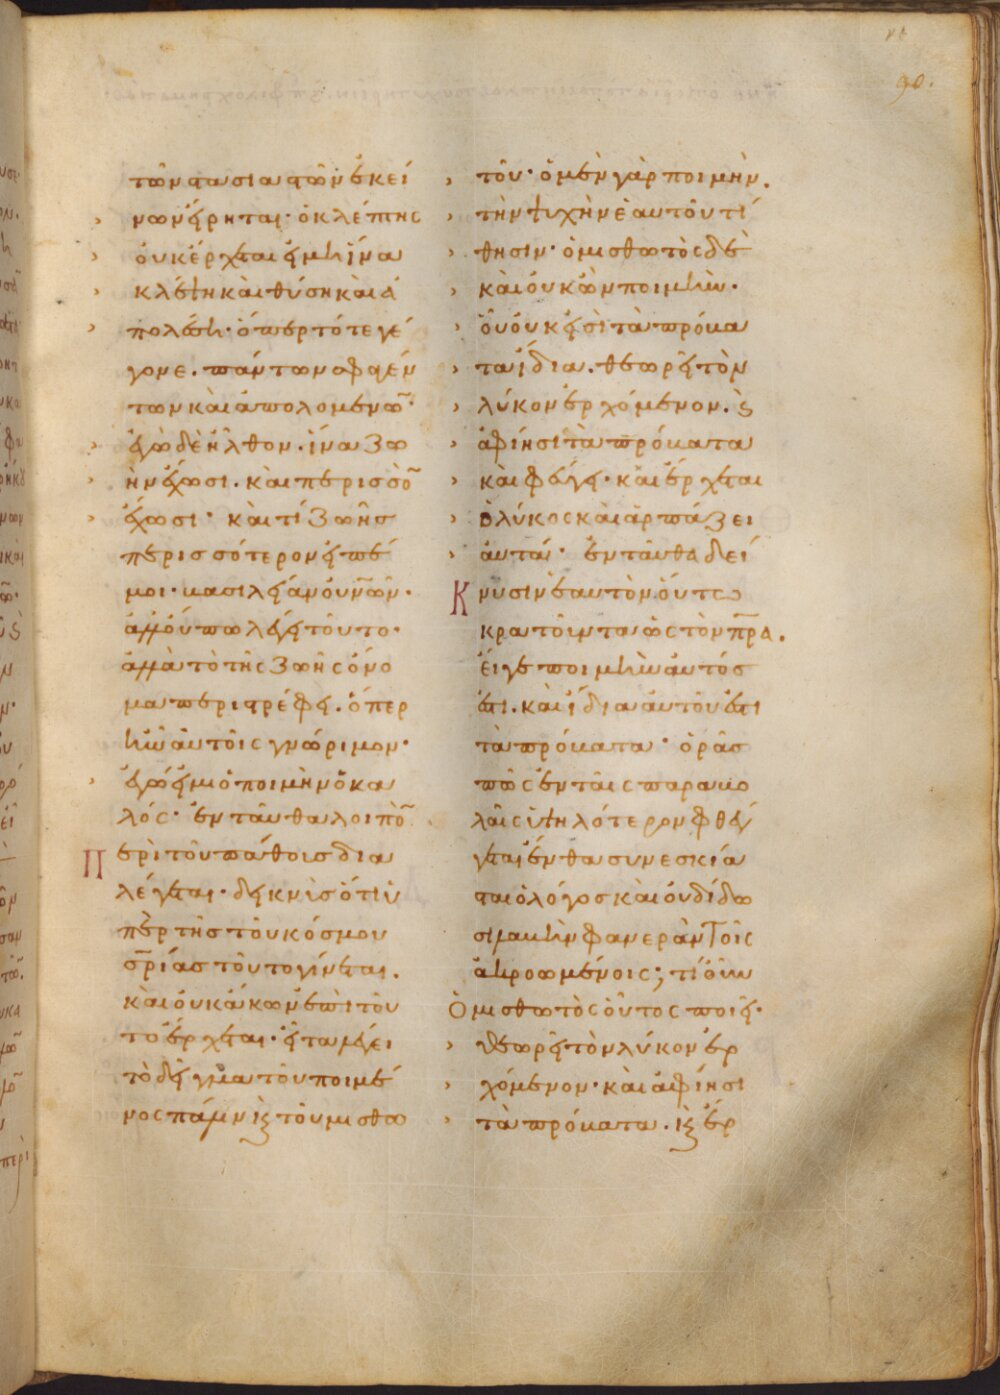 90.
τῶν στασιαστῶν ἐκεί
νων εἴρηται· ὁ κλέπτης
οὐκ ἔρχεται εἰ μὴ ἵνα
κλέψη καὶ θύση καὶ ἀ
πολέση· ὅπερ τότε γέ
γονε. πάντων σφαγέν
των καὶ ἀπολομένων·
ἐγὼ δὲ ἦλθον. ἵνα ζω
ὴν ἔχωσι. καὶ περισσὸν
ἔχωσι· καὶ τί ζωῆσ
περισσότερον εἰπέ
μοι· βασιλεία οὐνῶν·
ἀλλ' οὔπω λέγει τοῦτο·
ἀλλὰ τὸ τῆς ζωῆς ὄνο
μα περιστρέφει. ὅπερ
ἦν αὐτοῖς γνώριμον·
ἐγώ εἰμι ὁ ποιμὴν ὁ κα
λός· ἐνταῦθα λοιπὸν
Περὶ τοῦ πάθους δια
λέγεται· δεικνὺς ὅτι ὑ
πὲρ τῆς τοῦ κόσμου
σρίας τοῦτο γίνεται.
καὶ οὐκ ἄκων ἐπὶ τοῦ
το ἔρχεται· εἶτα λέγει
τὸ δεῖγμα τοῦ ποιμέ
νος πάλιν καὶ τοῦ μισθω
τοῦ· ὁ μὲν γὰρ ποιμὴν.
τὴν ψυχὴν ἑαυτοῦ τί
θησιν· ὁ μισθωτὸς δὲ
καὶ οὐκ ὢν ποιμὴν·
οὗ οὐκ εἰσὶ τὰ πρόβα
τα ἴδια. θεωρεῖ τὸν
λύκον ἐρχόμενον. καὶ
ἀφίησι τὰ πρόβατα
καὶ φεύγει· καὶ ἔρχεται
ὁ λύκος καὶ ἁρπάζει
αὐτά· ἐνταῦθα δεί
Κνυσιν ἑαυτὸν οὕτω
κρατοῦντα ὡς τὸν πρα.
εἴγε ποιμὴν αὐτός
ἐστι. καὶ ἴδια αὐτοῦ ἐστι
τὰ πρόβατα· ὁρᾶσ
πῶς ἐν ταῖς παραβο
λαῖς ὑψηλότερον φθέγ
γεται ἔνθα συνεσκία
σται ὁ λόγος καὶ οὐ δίδω
σι λαβὴν φανερὰν τοῖς
ἀκροωμένοις; τί οὖν
Ὁ μισθωτὸς οὗτος ποιεῖ·
θεωρεῖ τὸν λύκον ἐρ
χόμενον· καὶ ἀφίησι
τὰ πρόβατα. καὶ ἔρ